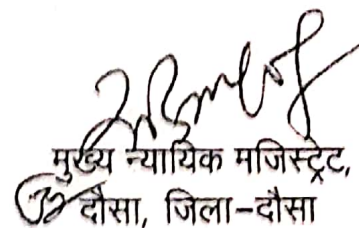 मुख्य न्यायिक मजिस्ट्रेट,
दौसा, जिला-दौसा